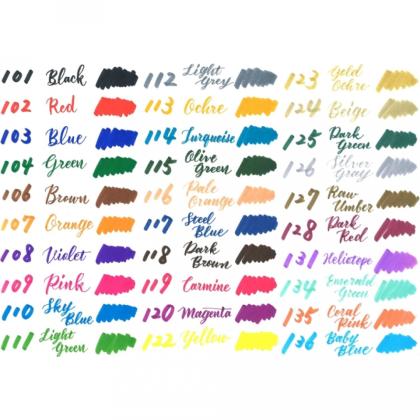 101 Black
112 Light Grey
123 Gold Ochre
102 Red
113 Ochre
124 Beige
103 Blue
114 Turquoise
125 Dark Green
104 Green
115 Olive Green
126 Silver Gray
106 Brown
116 Pale Orange
127 Raw Umber
107 Orange
117 Steel Blue
128 Dark Red
108 Violet
118 Dark Brown
131 Heliotepe
109 Pink
119 Carmine
134 Emerald Green
110 Sky Blue
120 Magenta
135 Coral Pink
111 Light Green
122 Yellow
136 Baby Blue